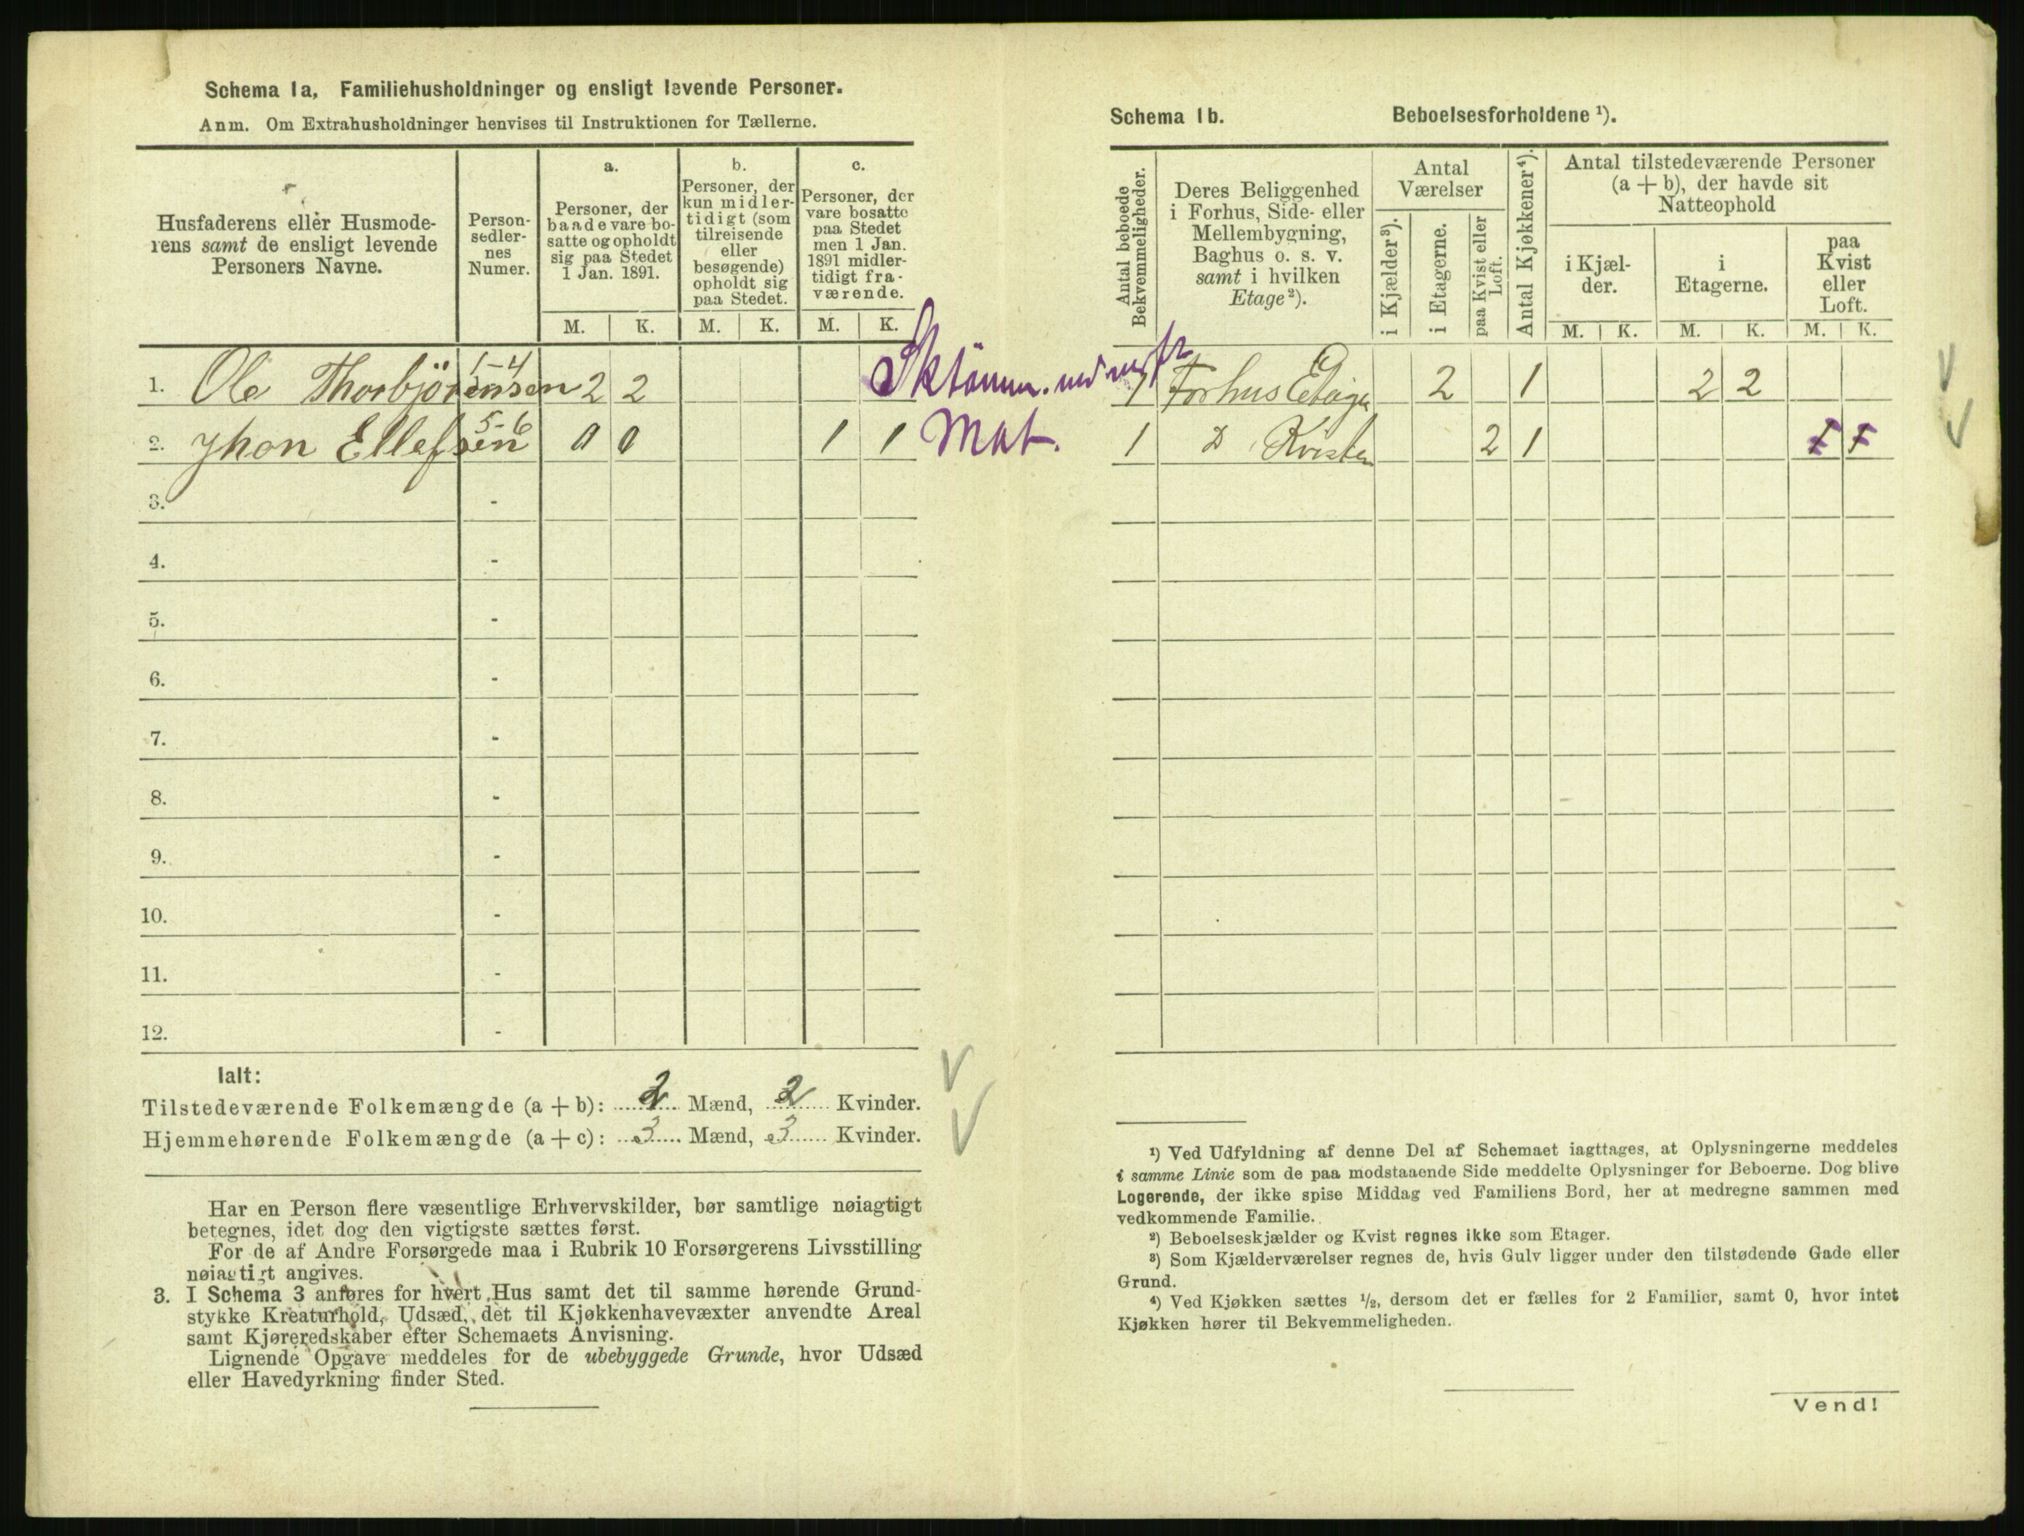 Schema 1a, Familiehusholdninger og ensligt levende Personer.
Anm. Om Extrahusholdninger henvises til Instruktionen for Tællerne.
Husfaderens eller Husmode-
rens samt de ensligt levende
Personers Navne.
Person-
sedler-
nes
Numer.
a.
Personer, der
baade vare bo-
satte og opholdt
sig paa Stedet
1 Jan. 1891.
b.
Personer, der
kun midler-
tidigt (som
tilreisende
eller
besøgende)
opholdt sig
paa Stedet.
c.
Personer, der
vare bosatte
paa Stedet
men 1 Jan.
1891 midler-
tidigt fra-
værende.
M. K. M. K. M. K.
1. Ole Thorbjörensen 1-4 2 2
2. Jhon Ellefsen 5-6 0 0 1 1 Mat.
3. -
4. -
5. -
6. -
7. -
8. -
9. -
10. -
11. -
12. -
Ialt:
Tilstedeværende Folkemængde (a + b): 2 Mænd, 2 Kvinder.
Hjemmehørende Folkemængde (a + c): 3 Mænd, 3 Kvinder.
Har en Person flere væsentlige Erhvervskilder, bør samtlige nøiagtigt
betegnes, idet dog den vigtigste sættes først.
For de af Andre Forsørgede maa i Rubrik 10 Forsørgerens Livsstilling
nøiagtigt angives.
3. I Schema 3 anføres for hvert Hus samt det til samme hørende Grund-
stykke Kreaturhold, Udsæd, det til Kjøkkenhavevæxter anvendte Areal
samt Kjøreredskaber efter Schemaets Anvisning.
Lignende Opgave meddeles for de ubebyggede Grunde, hvor Udsæd
eller Havedyrkning finder Sted.
Schema 1b. Beboelsesforholdene ¹).
Antal beboede
Bekvemmeligheder.
Deres Beliggenhed
i Forhus, Side- eller
Mellembygning,
Baghus o. s. v.
samt i hvilken
Etage ²).
Antal
Værelser
i Kjælder ³).
i Etagerne.
paa Kvist eller
Loft.
Antal Kjøkkener ⁴).
Antal tilstedeværende Personer
(a + b), der havde sit
Natteophold
i Kjæl-
der.
i
Etagerne.
paa
Kvist
eller
Loft.
M. K. M. K. M. K.
1 Forhus Etage 2 1 2 2
1 D Kvisten 2 1 1 1
¹) Ved Udfyldning af denne Del af Schemaet iagttages, at Oplysningerne meddeles
i samme Linie som de paa modstaaende Side meddelte Oplysninger for Beboerne. Dog blive
Logerende, der ikke spise Middag ved Familiens Bord, her at medregne sammen med
vedkommende Familie.
²) Beboelseskjælder og Kvist regnes ikke som Etager.
³) Som Kjælderværelser regnes de, hvis Gulv ligger under den tilstødende Gade eller
Grund.
⁴) Ved Kjøkken sættes ½, dersom det er fælles for 2 Familier, samt 0, hvor intet
Kjøkken hører til Bekvemmeligheden.
Vend!